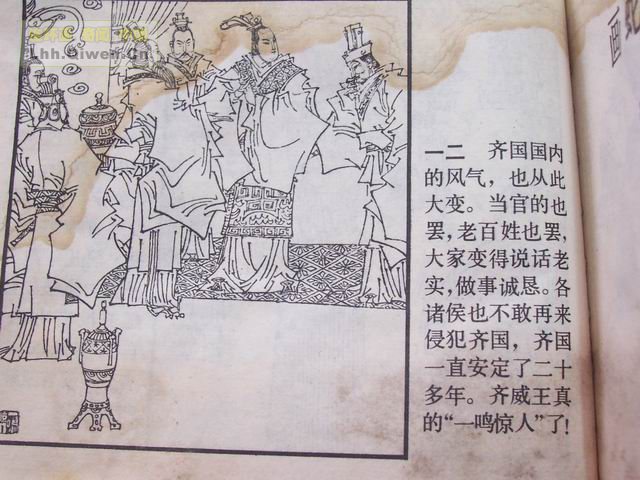 一二 齐国国内
的风气，也从此
大变。当官的也
罢，老百姓也罢，
大家变得说话老
实，做事诚恳。各
诸侯也不敢再来
侵犯齐国，齐国
一直安定了二十
多年。齐威王真
的“一鸣惊人”了！